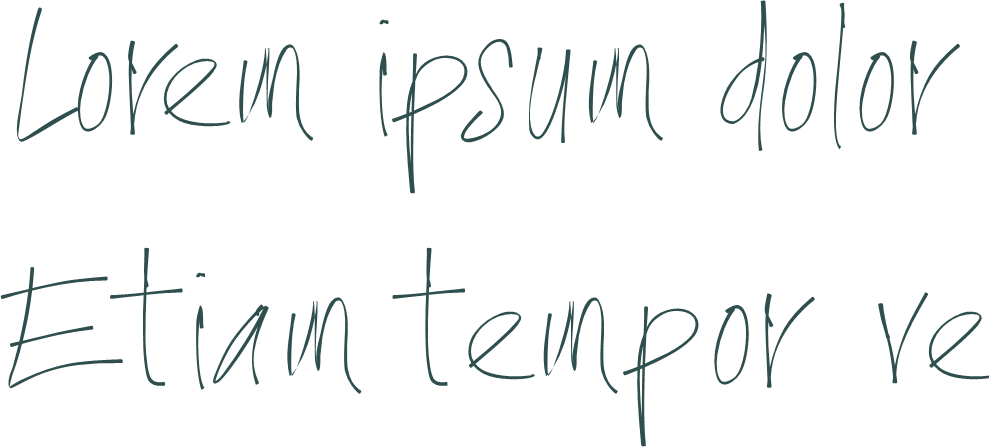 Lorem ipsum dolor
Etiam tempor ve